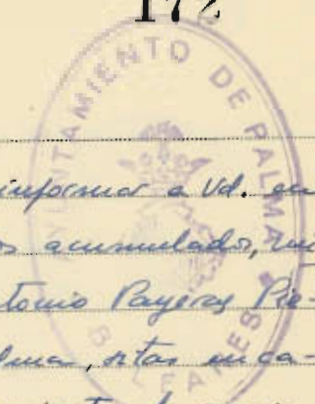 172
AYUNTAMIENTO DE PALMA
BALEARES
informar a Vd. en
os acumulador,
tonio Payeras Pie-
lma, sitas en ca-